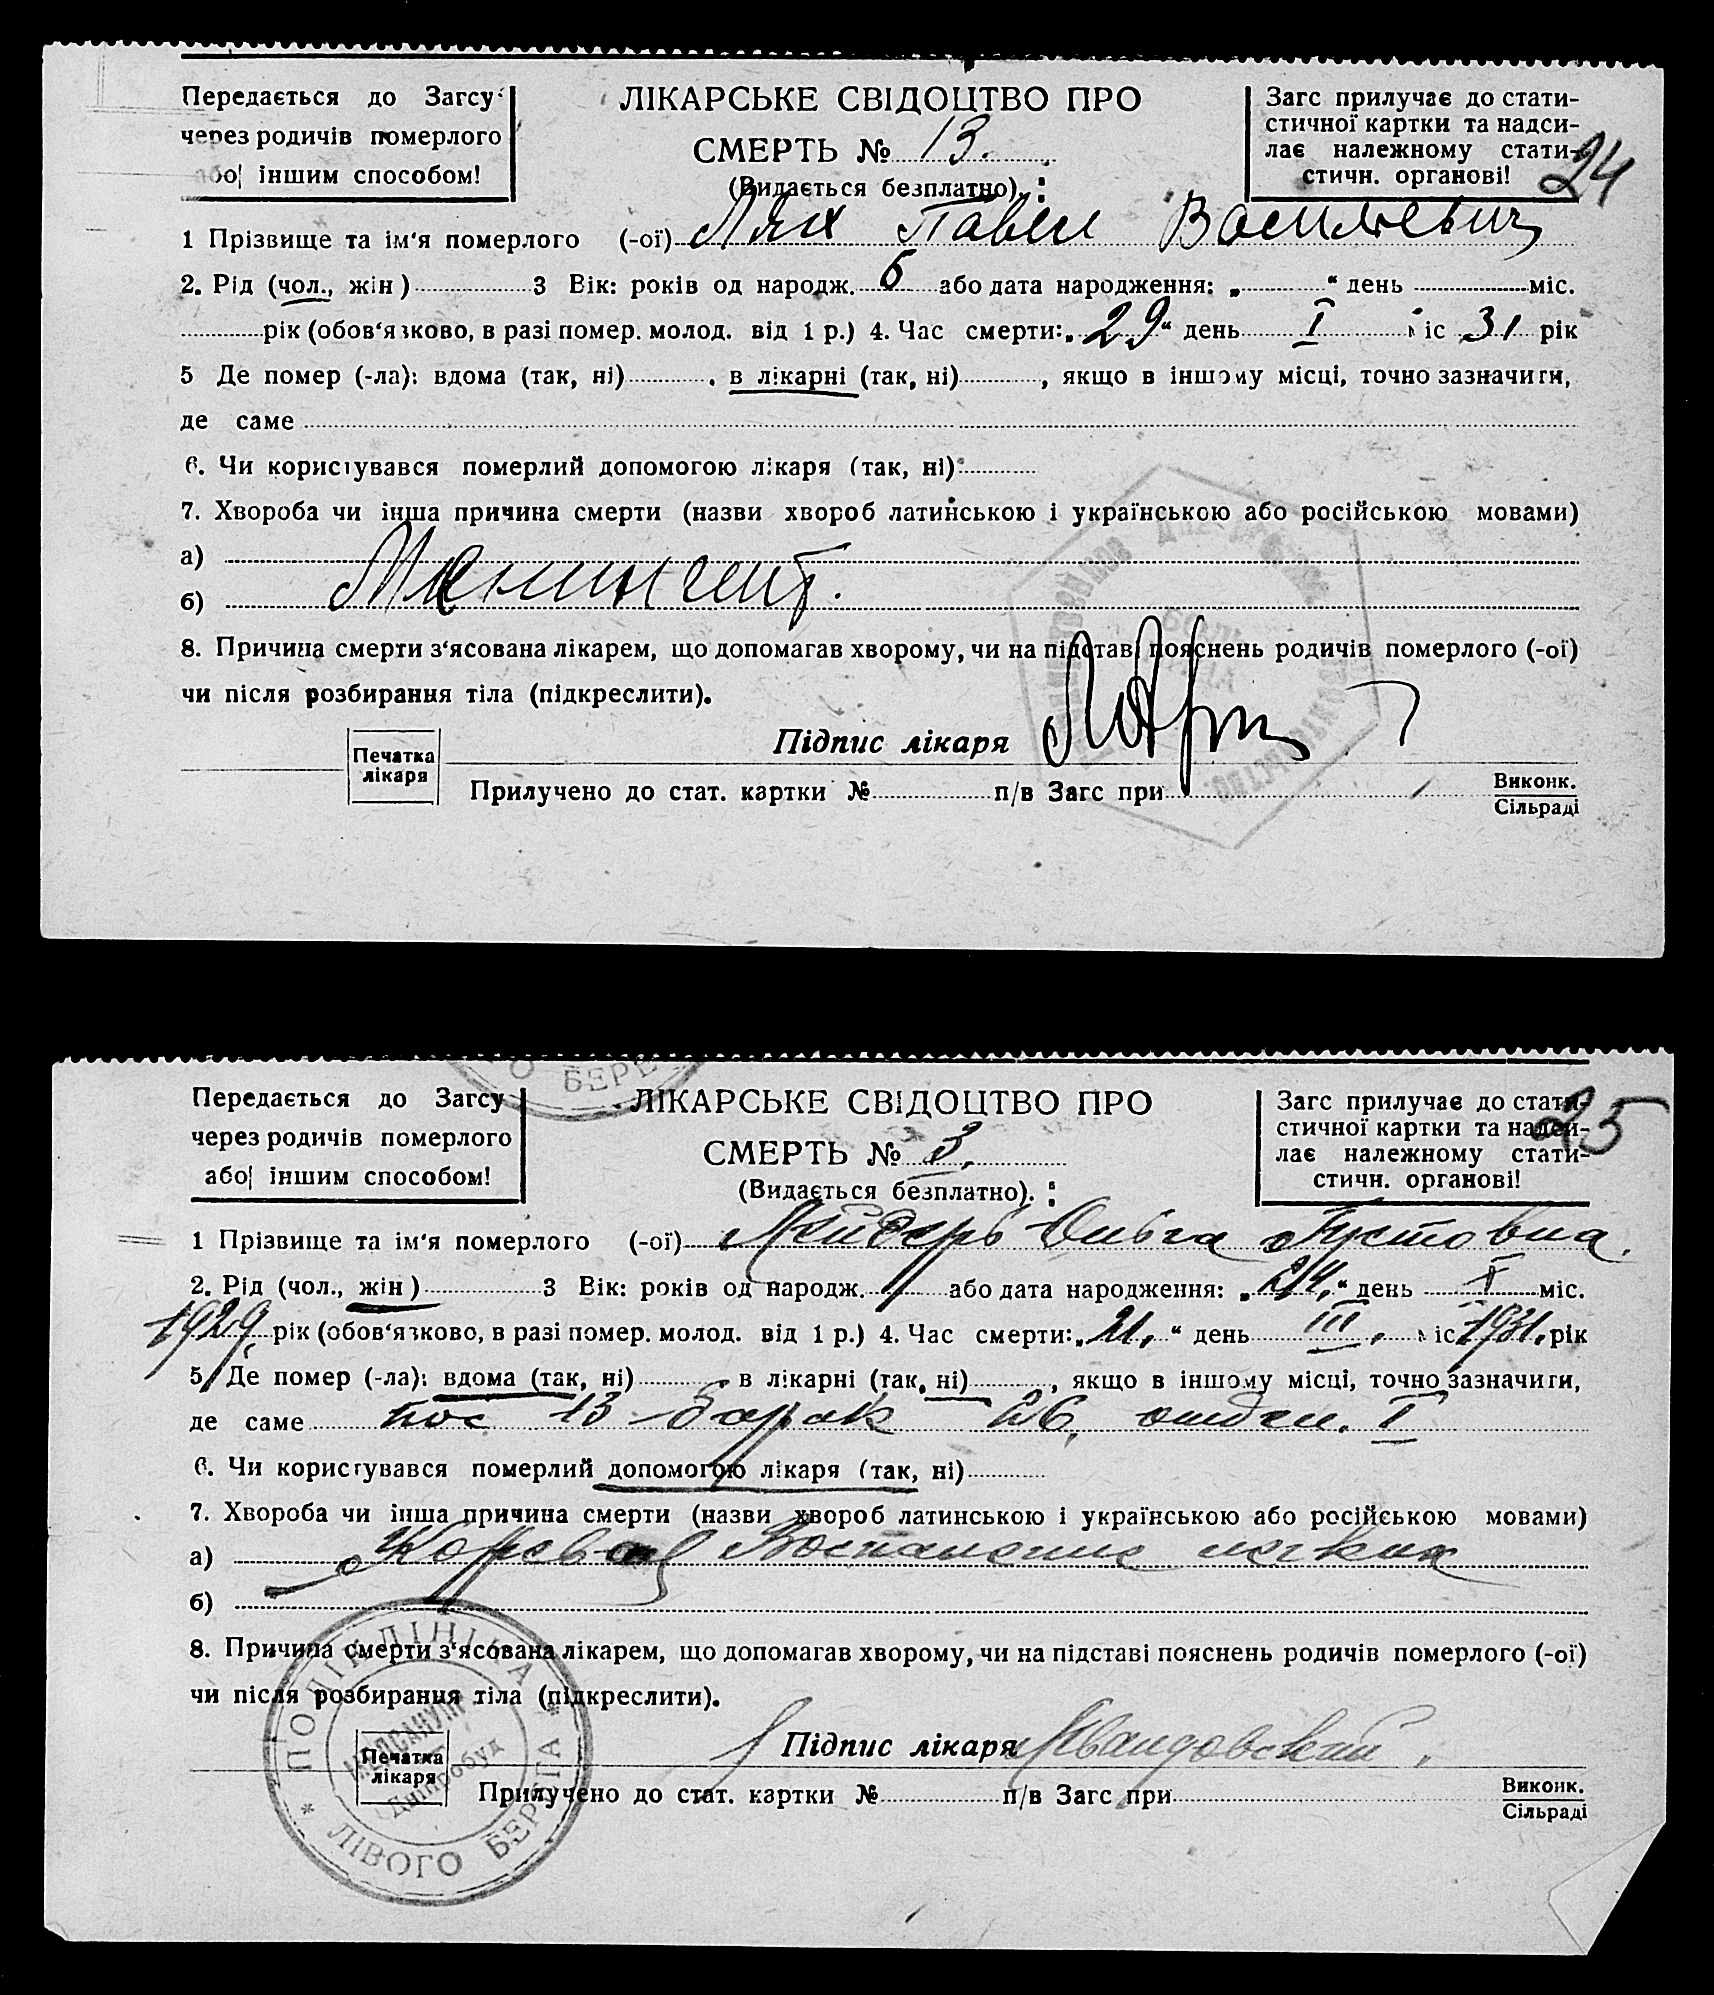 Передається до Загсу
через родичів померлого
або іншим способом!
ЛІКАРСЬКЕ СВІДОЦТВО ПРО
СМЕРТЬ № 13.
(Видається безплатно).
Загс прилучає до стати-
стичної картки та надси-
лає належному стати-
стичн. органові!
24
1 Прізвище та ім'я померлого (-ої) Лях Павел Василевич
2. Рід (чол., жін) 3 Вік: років од народж. 6 або дата народження: „ “ день міс.
рік (обов'язково, в разі помер. молод. від 1 р.) 4. Час смерти: „29“ день I міс 31 рік
5 Де помер (-ла): вдома (так, ні) , в лікарні (так, ні) , якщо в іншому місці, точно зазначити,
де саме
6. Чи користувався померлий допомогою лікаря (так, ні)
7. Хвороба чи інша причина смерти (назви хвороб латинською і українською або російською мовами)
а)
б) Менингит.
8. Причина смерти з'ясована лікарем, що допомагав хворому, чи на підставі пояснень родичів померлого (-ої)
чи після розбирання тіла (підкреслити).
Підпис лікаря
Печатка
лікаря
Прилучено до стат. картки № п/в Загс при Виконк.
Сільраді
БЕРЕ
Передається до Загсу
через родичів померлого
або іншим способом!
ЛІКАРСЬКЕ СВІДОЦТВО ПРО
СМЕРТЬ № 3.
(Видається безплатно).
Загс прилучає до стати-
стичної картки та надси-
лає належному стати-
стичн. органові!
25
1 Прізвище та ім'я померлого (-ої) Ольга Густовна.
2. Рід (чол., жін) 3 Вік: років од народж. або дата народження: „24.“ день міс.
1929 рік (обов'язково, в разі помер. молод. від 1 р.) 4. Час смерти: „21.“ день III. міс 1931. рік
5 Де помер (-ла): вдома (так, ні) , в лікарні (так, ні) , якщо в іншому місці, точно зазначити,
де саме пос 13 барак 26, отдел. I
6. Чи користувався померлий допомогою лікаря (так, ні)
7. Хвороба чи інша причина смерти (назви хвороб латинською і українською або російською мовами)
а) Воспаление легких
б)
8. Причина смерти з'ясована лікарем, що допомагав хворому, чи на підставі пояснень родичів померлого (-ої)
чи після розбирання тіла (підкреслити).
Підпис лікаря
Печатка
лікаря
Прилучено до стат. картки № п/в Загс при Виконк.
Сільраді
ПОЛІКЛІНІКА
ЛІВОГО БЕРЕГА
Дніпробуд